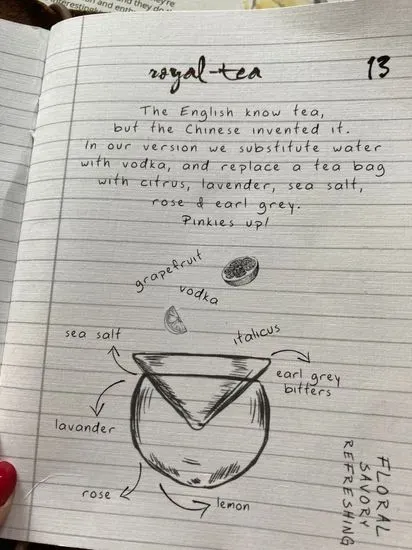 royal-tea
13
The English know tea,
but the Chinese invented it.
In our version we substitute water
with vodka, and replace a tea bag
with citrus, lavender, sea salt,
rose & earl grey.
Pinkies up!
grapefruit
vodka
sea salt
italicus
earl grey
bitters
lavander
rose
lemon
FLORAL
SAVORY
REFRESHING